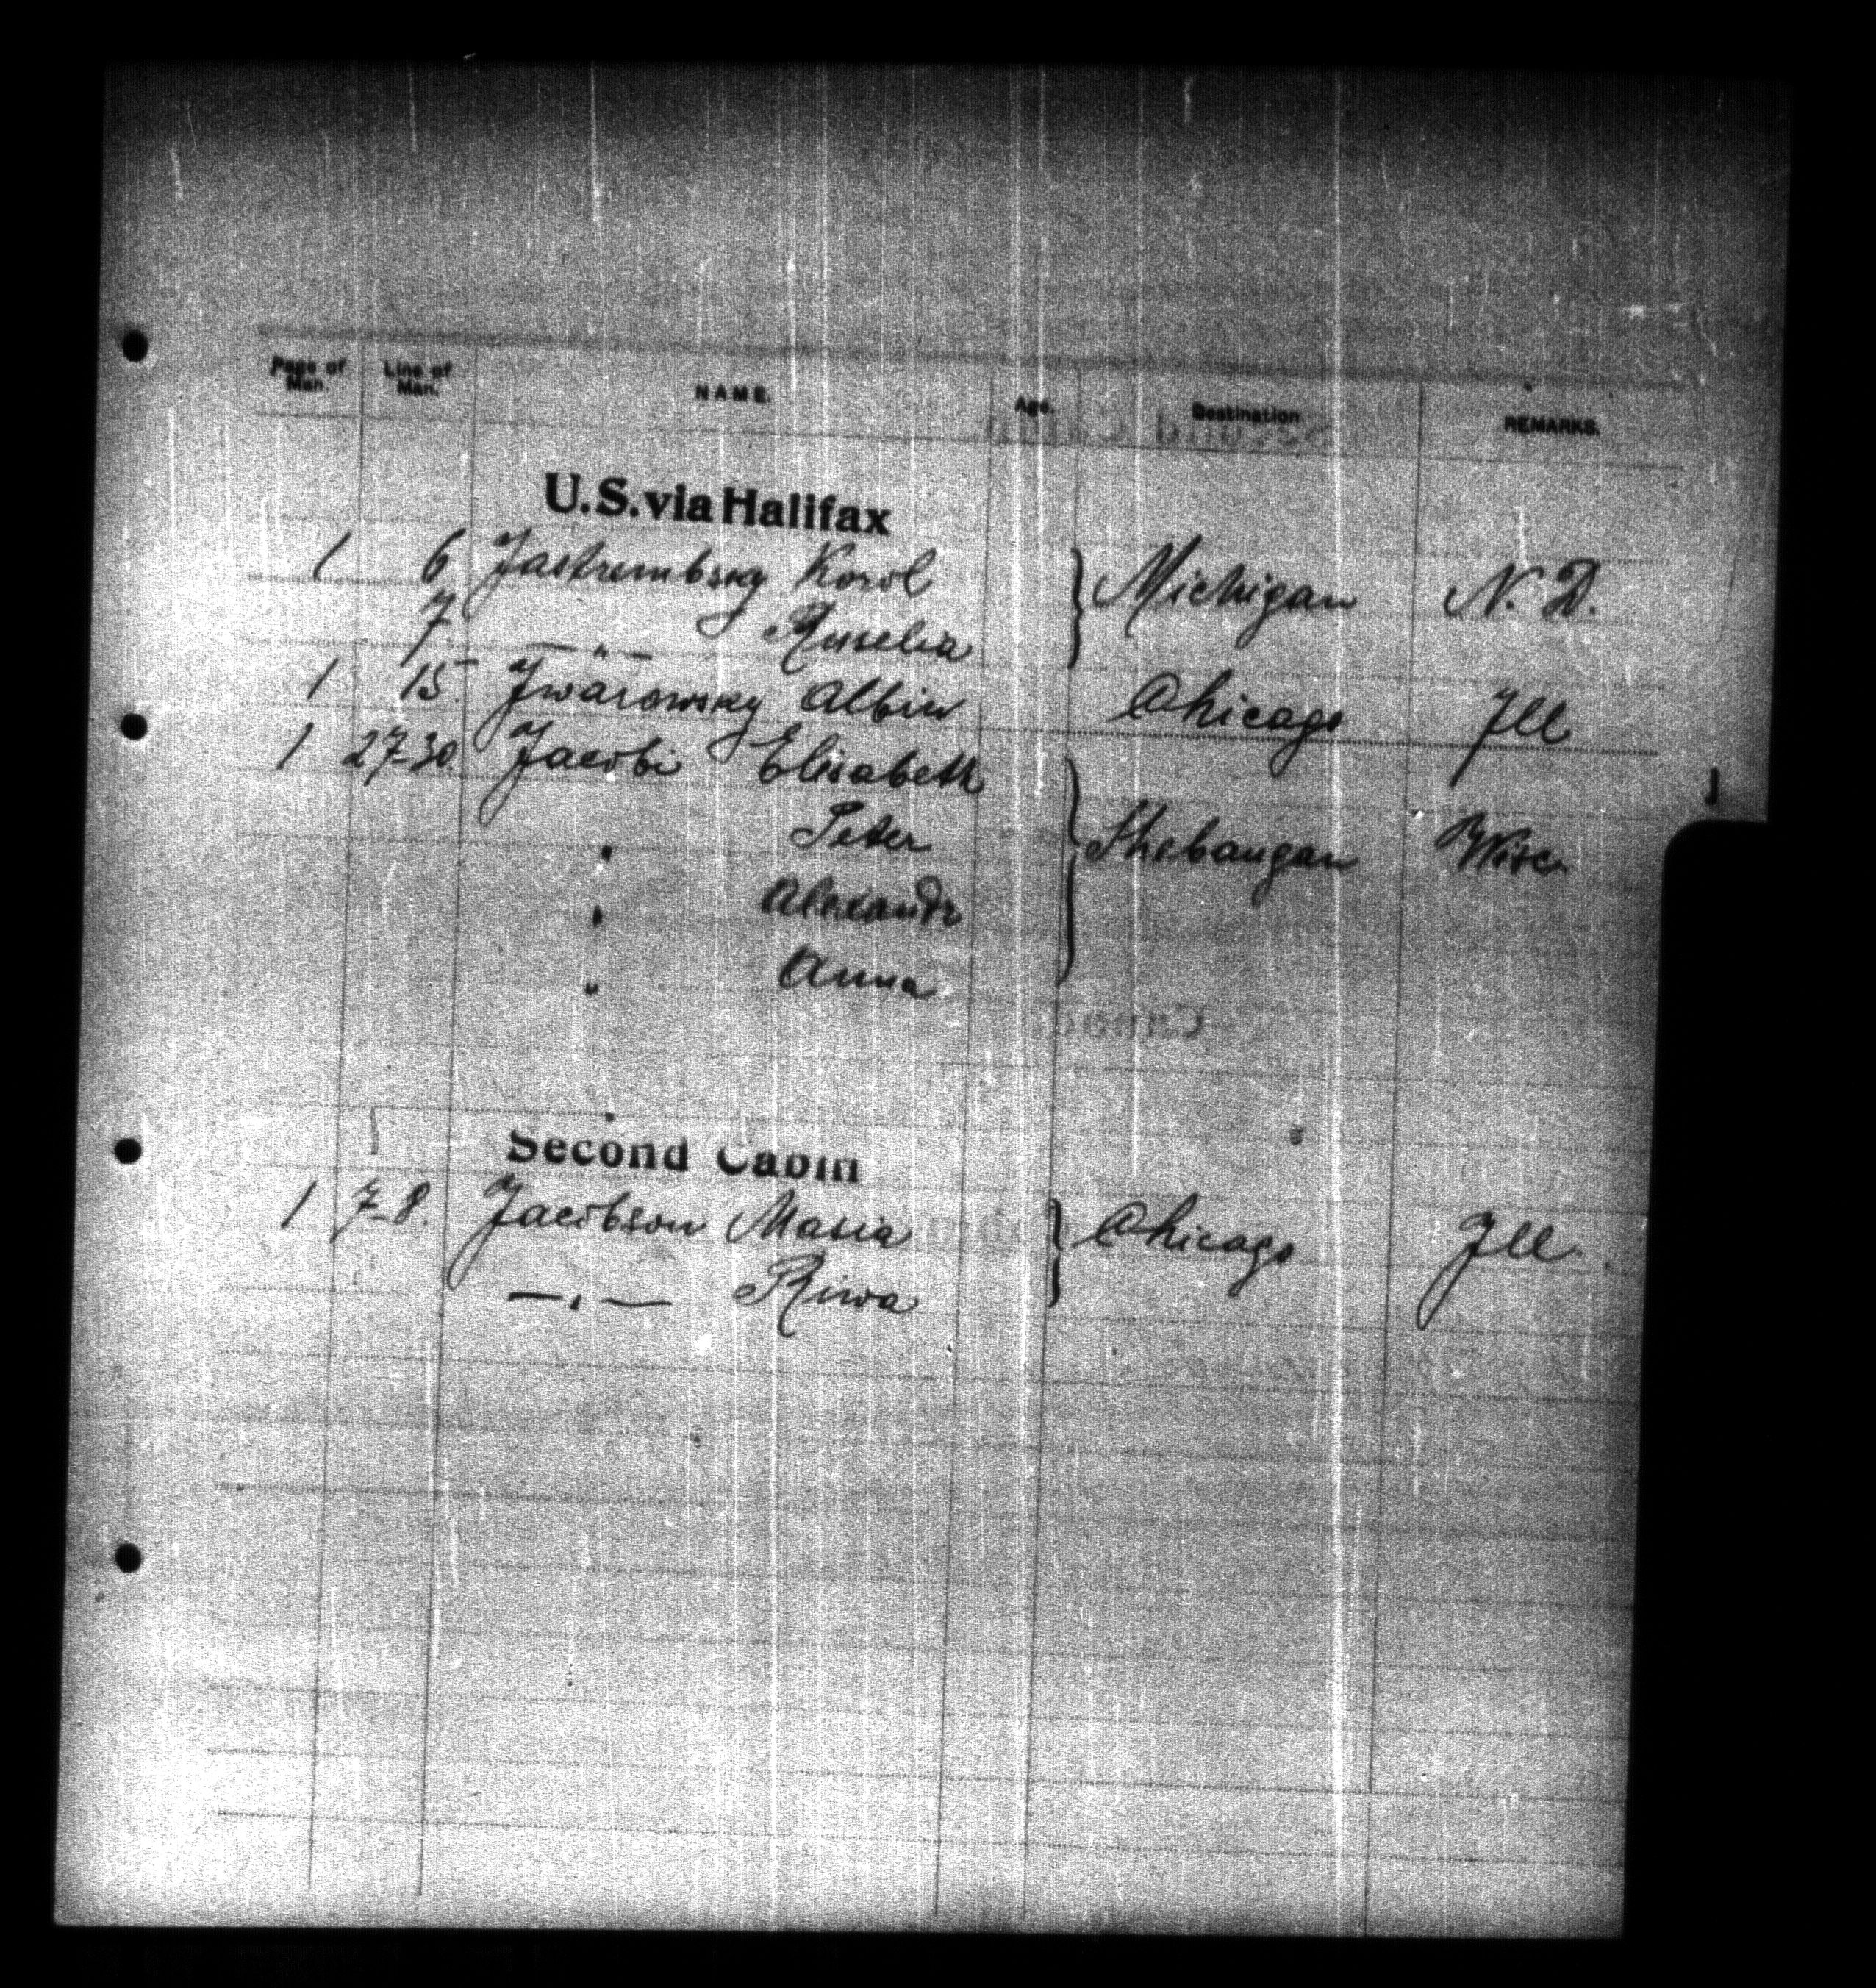 Page of Man. Line of Man. NAME. Age. Destination REMARKS.
U.S. via Halifax
1 6 Jastrembsky Korol } Michigan N. D.
7 — " — Ruselia
1 15 Jwarowsky Albin Chicago Jll
1 27-30 Jacobi Elisabeth } Shebaugan Wisc.
" Peter
" Alexandr
" Anna
J
Second Cabin
1 7-8. Jacobson Masia } Chicago Jll.
— " — Riwa